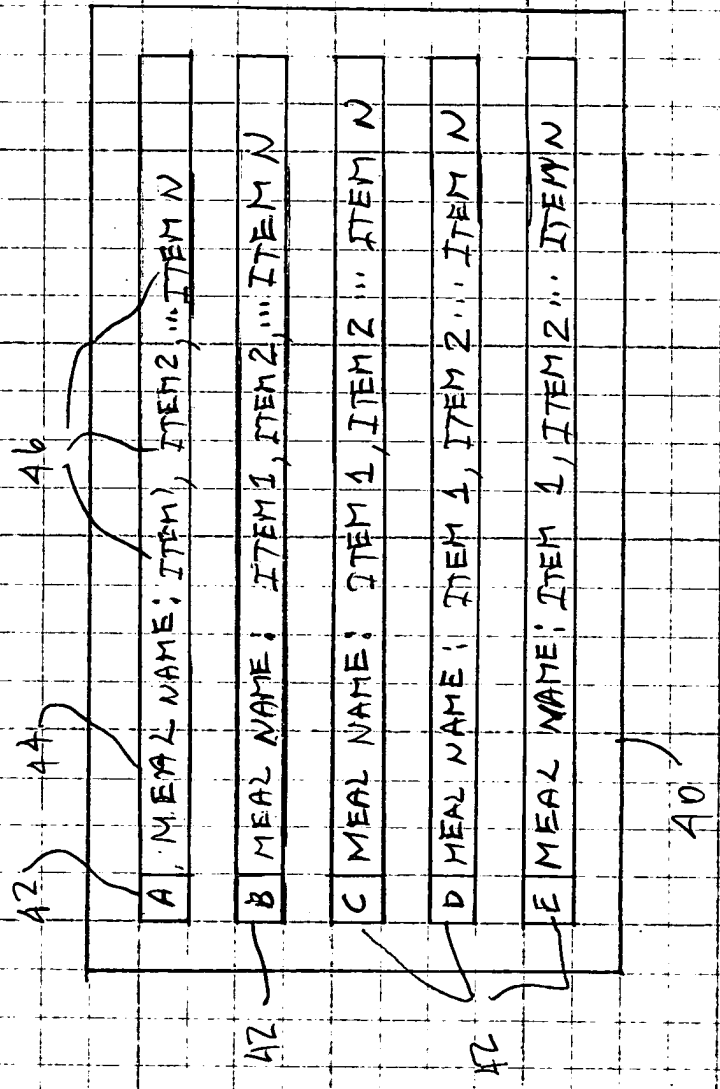 42 44 46
A MEAL NAME: ITEM 1, ITEM 2, ... ITEM N
42 B MEAL NAME: ITEM 1, ITEM 2, ... ITEM N
C MEAL NAME: ITEM 1, ITEM 2 ... ITEM N
42 D MEAL NAME: ITEM 1, ITEM 2 ... ITEM N
E MEAL NAME: ITEM 1, ITEM 2 ... ITEM N
40